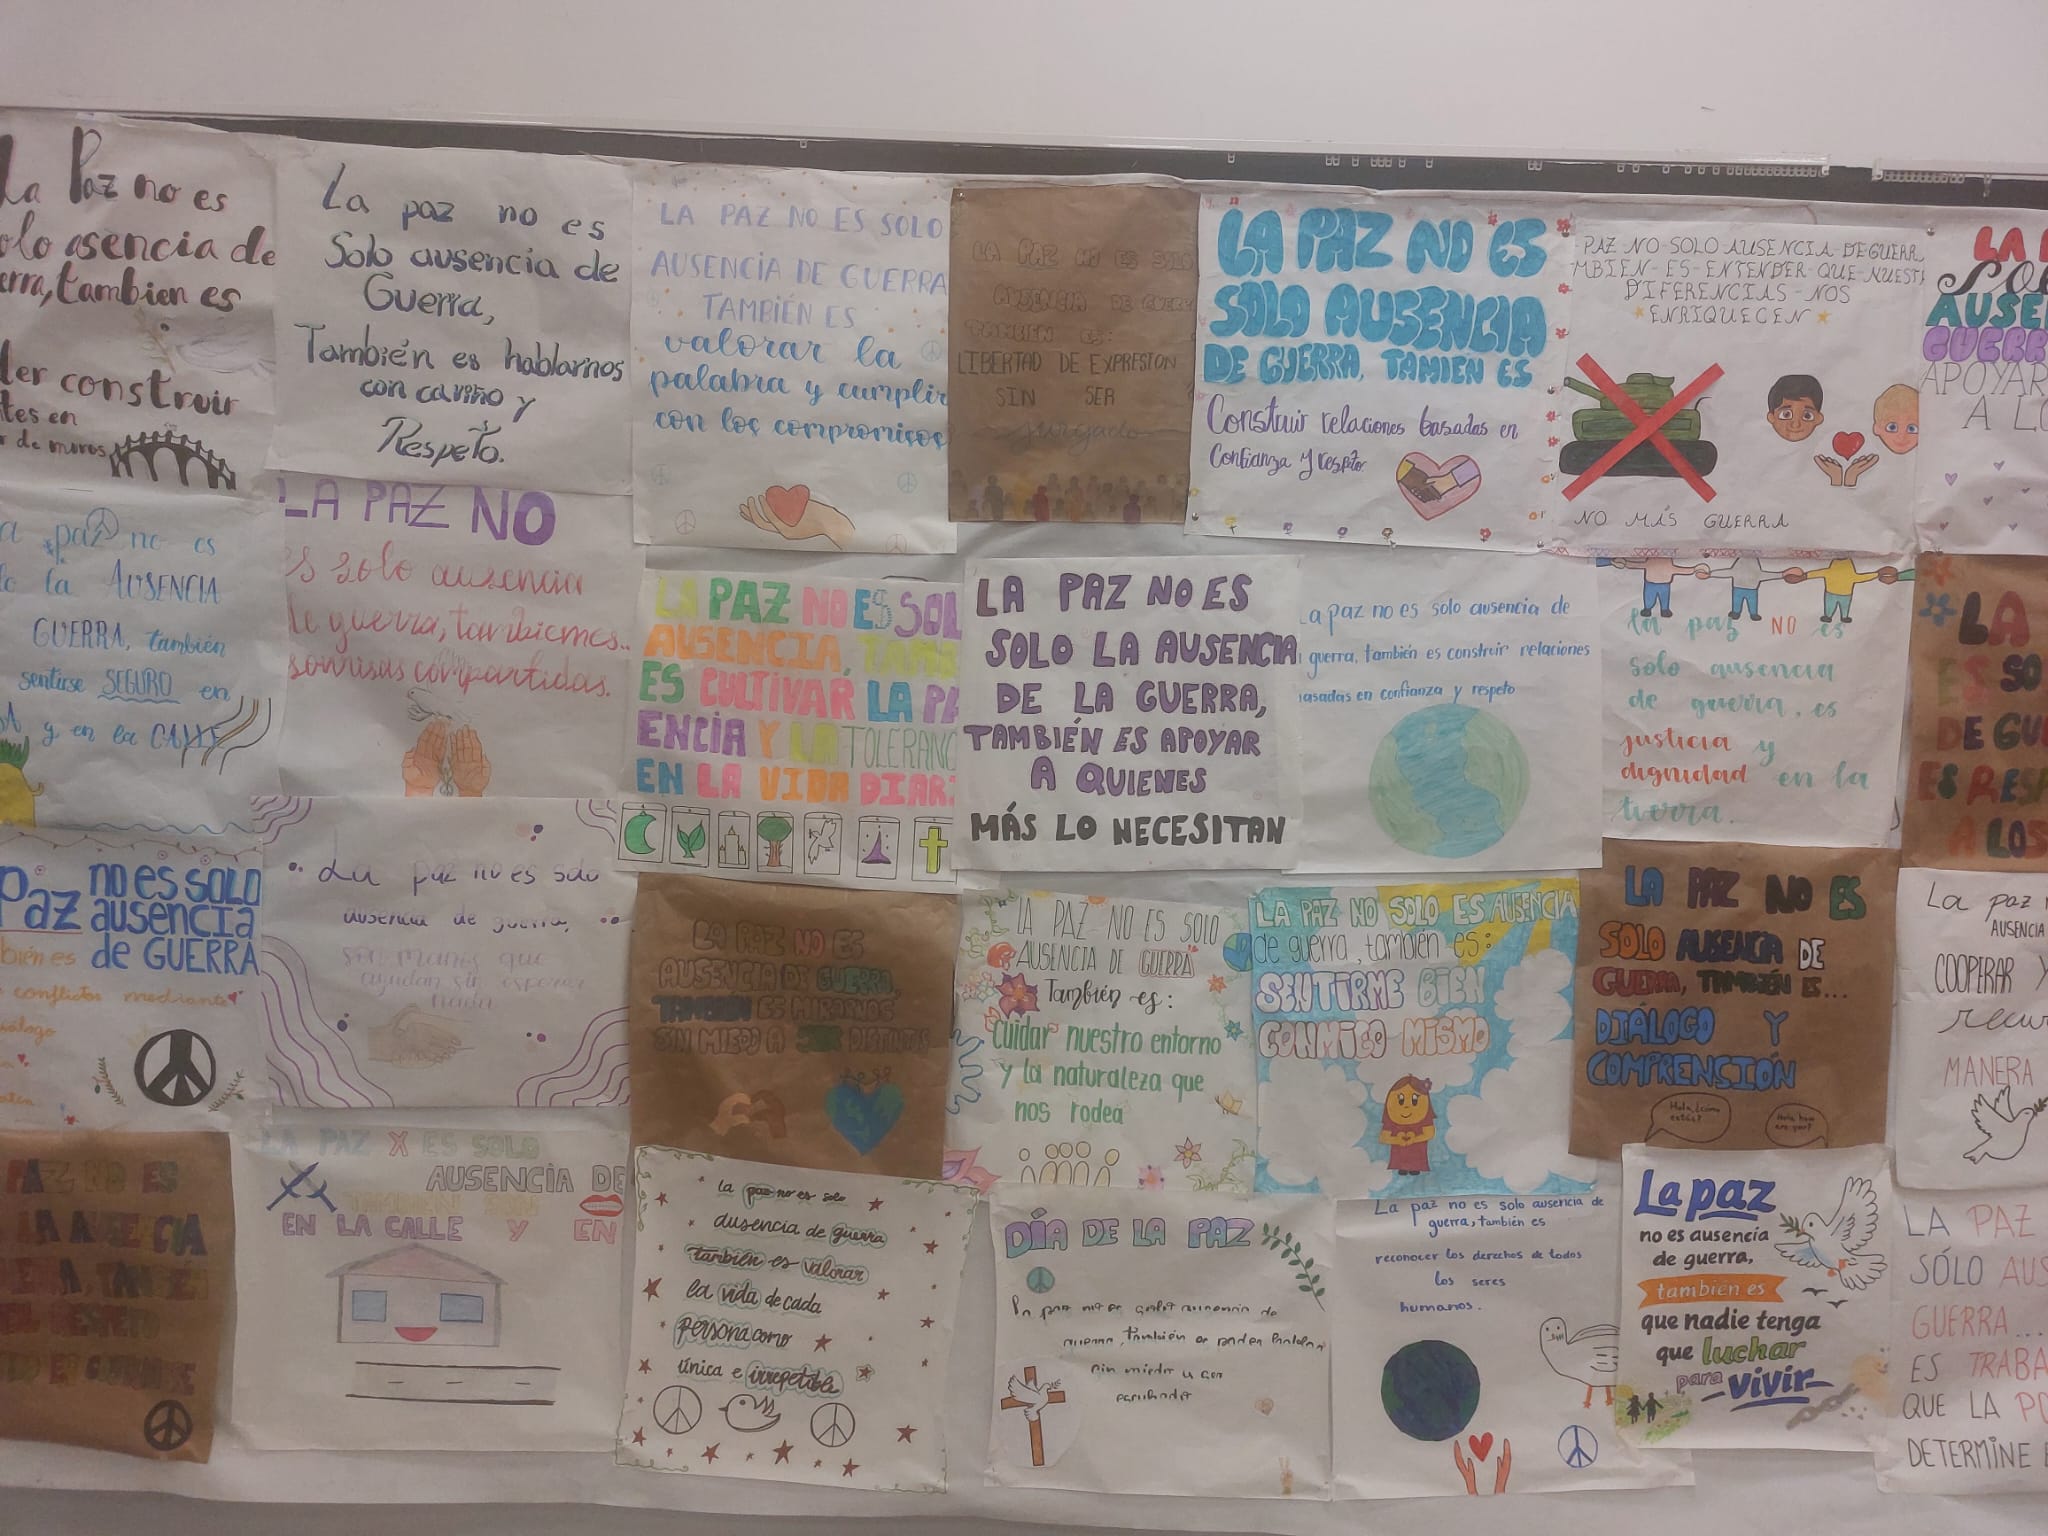 La Paz no es
asencia de
tambien es
construir
en
de muros
La paz no es
Solo ausencia de
Guerra,
También es hablarnos
con cariño y
Respeto.
LA PAZ NO ES SOLO
AUSENCIA DE GUERRA
TAMBIÉN ES
valorar la
palabra y cumplir
con los compromisos
LA PAZ NO ES SOLO
AUSENCIA DE
TAMBIEN ES:
LIBERTAD DE EXPRESION
SIN SER
juzgado
LA PAZ NO ES
SOLO AUSENCIA
DE GUERRA, TAMIEN ES
Construir relaciones basadas en
Confianza y respeto
PAZ-NO-SOLO-AUSENCIA-DE
ES-ENTENDER-QUE
DIFERENCIAS-NOS
ENRIQUECEN
NO MÁS GUERRA
APOYAR
A
paz no es
la AUSENCIA
GUERRA, también
sentirse SEGURO en
y en la CALLE
LA PAZ NO
es solo ausencia
de guerra, tambiemes..
sonrisas compartidas.
LA PAZ NO ES
AUSENCIA,
ES CULTIVAR LA
Y LA
EN LA VIDA
LA PAZ NO ES
SOLO LA AUSENCIA
DE LA GUERRA,
TAMBIÉN ES APOYAR
A QUIENES
MÁS LO NECESITAN
La paz no es solo ausencia de
guerra, también es construir relaciones
en confianza y respeto
la paz NO es
solo ausencia
de guerra, es
justicia y
dignidad en la
tierra.
LA
ES SO
DE
ES
A LOS
Paz no es SOLO
ausencia
es de GUERRA
conflictos mediante
La paz no es solo
ausencia de guerra,
son manos que
ayudan sin esperar
nada
LA PAZ NO ES
AUSENCIA DE GUERRA,
TAMBIÉN ES MIRARNOS
SIN MIEDO A SER DISTINTOS
LA PAZ NO ES SOLO
AUSENCIA DE GUERRA
También es:
Cuidar nuestro entorno
y la naturaleza que
nos rodea
LA PAZ NO SOLO ES AUSENCIA
de guerra, también es:
SENTIRME BIEN
CONMIGO MISMO
LA PAZ NO ES
SOLO AUSENCIA DE
GUERRA, TAMBIÉN ES...
DIÁLOGO Y
COMPRENSIÓN
Hola, ¿cómo
estás?
La paz
AUSENCIA
COOPERAR Y
MANERA
PAZ NO ES
LA AUSENCIA
EL RESPETO
LA PAZ X ES SOLO
AUSENCIA DE
TAMBIEN SON
EN LA CALLE Y EN
la paz no es solo
ausencia de guerra
también es valorar
la vida de cada
persona como
única e irrepetible
DÍA DE LA PAZ
La paz no es solo ausencia de
guerra, también es poder hablar
sin miedo y ser
escuchado
La paz no es solo ausencia de
guerra, también es
reconocer los derechos de todos
los seres
humanos.
La paz
no es ausencia
de guerra,
también es
que nadie tenga
que luchar
para vivir
LA PAZ
SÓLO
GUERRA...
ES
QUE LA
DETERMINE